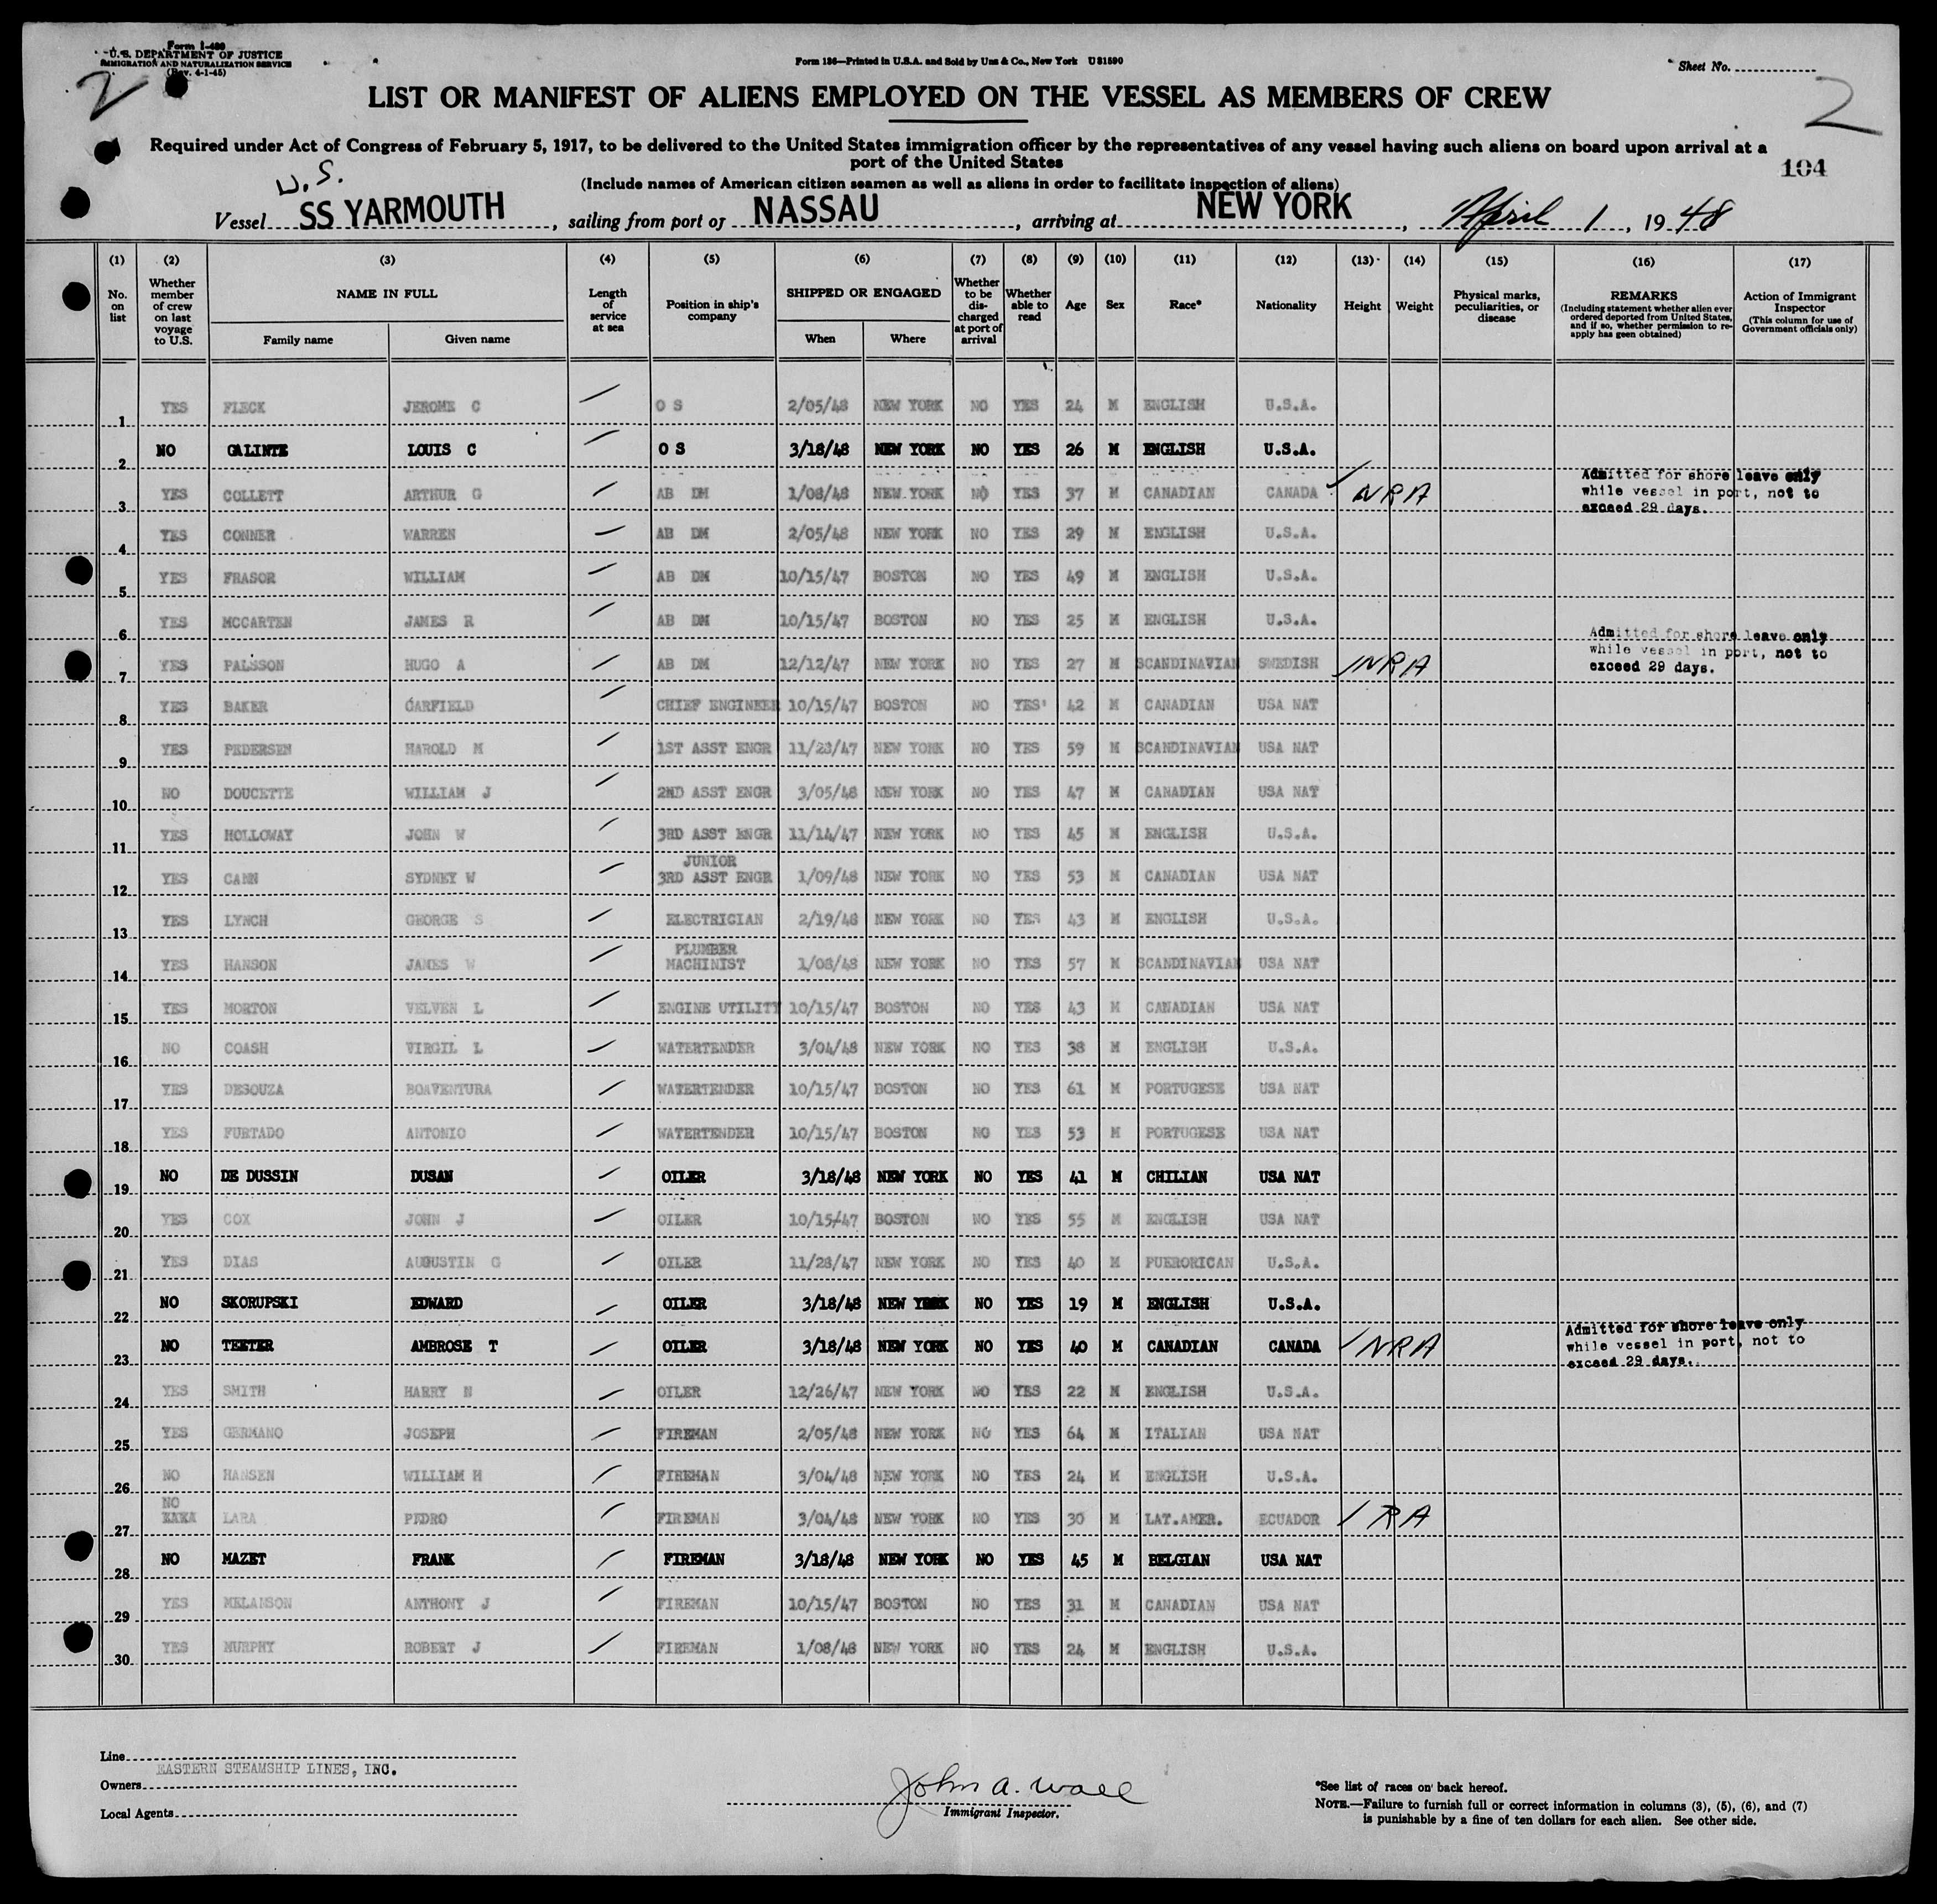 Form I-480
U.S. DEPARTMENT OF JUSTICE
IMMIGRATION AND NATURALIZATION SERVICE
(Rev. 4-1-45)
Form 136—Printed in U.S.A. and Sold by Unz & Co., New York U 31590
Sheet No.
2
2
LIST OR MANIFEST OF ALIENS EMPLOYED ON THE VESSEL AS MEMBERS OF CREW
Required under Act of Congress of February 5, 1917, to be delivered to the United States immigration officer by the representatives of any vessel having such aliens on board upon arrival at a
port of the United States
104
(Include names of American citizen seamen as well as aliens in order to facilitate inspection of aliens)
U.S.
Vessel SS YARMOUTH, sailing from port of NASSAU, arriving at NEW YORK, April 1, 1948
(1) (2) (3) (4) (5) (6) (7) (8) (9) (10) (11) (12) (13) (14) (15) (16) (17)
No. on list
Whether member of crew on last voyage to U.S.
NAME IN FULL
Family name Given name
Length of service at sea
Position in ship's company
SHIPPED OR ENGAGED
When Where
Whether to be discharged at port of arrival
Whether able to read
Age Sex Race* Nationality Height Weight
Physical marks, peculiarities, or disease
REMARKS
(Including statement whether alien ever ordered deported from United States, and if so, whether permission to re-apply has geen obtained)
Action of Immigrant Inspector
(This column for use of Government officials only)
1 YES FLECK JEROME C O S 2/05/48 NEW YORK NO YES 24 M ENGLISH U.S.A.
2 NO GALINTE LOUIS C O S 3/18/48 NEW YORK NO YES 26 M ENGLISH U.S.A.
3 YES COLLETT ARTHUR G AB DM 1/08/48 NEW YORK NO YES 37 M CANADIAN CANADA NRA Admitted for shore leave only while vessel in port, not to exceed 29 days.
4 YES CONNER WARREN AB DM 2/05/48 NEW YORK NO YES 29 M ENGLISH U.S.A.
5 YES FRASOR WILLIAM AB DM 10/15/47 BOSTON NO YES 49 M ENGLISH U.S.A.
6 YES MCCARTEN JAMES R AB DM 10/15/47 BOSTON NO YES 25 M ENGLISH U.S.A.
7 YES PALSSON HUGO A AB DM 12/12/47 NEW YORK NO YES 27 M SCANDINAVIAN SWEDISH NRA Admitted for shore leave only while vessel in port, not to exceed 29 days.
8 YES BAKER GARFIELD CHIEF ENGINEER 10/15/47 BOSTON NO YES 42 M CANADIAN USA NAT
9 YES PEDERSEN HAROLD M 1ST ASST ENGR 11/28/47 NEW YORK NO YES 59 M SCANDINAVIAN USA NAT
10 NO DOUCETTE WILLIAM J 2ND ASST ENGR 3/05/48 NEW YORK NO YES 47 M CANADIAN USA NAT
11 YES HOLLOWAY JOHN W 3RD ASST ENGR 11/14/47 NEW YORK NO YES 45 M ENGLISH U.S.A.
12 YES CANN SYDNEY W JUNIOR 3RD ASST ENGR 1/09/48 NEW YORK NO YES 53 M CANADIAN USA NAT
13 YES LYNCH GEORGE S ELECTRICIAN 2/19/48 NEW YORK NO YES 43 M ENGLISH U.S.A.
14 YES HANSON JAMES W PLUMBER MACHINIST 1/08/48 NEW YORK NO YES 57 M SCANDINAVIAN USA NAT
15 YES MORTON VELVEN L ENGINE UTILITY 10/15/47 BOSTON NO YES 43 M CANADIAN USA NAT
16 NO COASH VIRGIL L WATERTENDER 3/04/48 NEW YORK NO YES 38 M ENGLISH U.S.A.
17 YES DESOUZA BOAVENTURA WATERTENDER 10/15/47 BOSTON NO YES 61 M PORTUGESE USA NAT
18 YES FURTADO ANTONIO WATERTENDER 10/15/47 BOSTON NO YES 53 M PORTUGESE USA NAT
19 NO DE DUSSIN DUSAN OILER 3/18/48 NEW YORK NO YES 41 M CHILIAN USA NAT
20 YES COX JOHN J OILER 10/15/47 BOSTON NO YES 55 M ENGLISH USA NAT
21 YES DIAS AUGUSTIN G OILER 11/28/47 NEW YORK NO YES 40 M PUERORICAN U.S.A.
22 NO SKORUPSKI EDWARD OILER 3/18/48 NEW YORK NO YES 19 M ENGLISH U.S.A.
23 NO TEETER AMBROSE T OILER 3/18/48 NEW YORK NO YES 40 M CANADIAN CANADA NRA Admitted for shore leave only while vessel in port, not to exceed 29 days.
24 YES SMITH HARRY N OILER 12/26/47 NEW YORK NO YES 22 M ENGLISH U.S.A.
25 YES GERMANO JOSEPH FIREMAN 2/05/48 NEW YORK NO YES 64 M ITALIAN USA NAT
26 NO HANSEN WILLIAM H FIREMAN 3/04/48 NEW YORK NO YES 24 M ENGLISH U.S.A.
27 NO LARA PEDRO FIREMAN 3/04/48 NEW YORK NO YES 30 M LAT.AMER. ECUADOR RA
28 NO MAZET FRANK FIREMAN 3/18/48 NEW YORK NO YES 45 M BELGIAN USA NAT
29 YES MELANSON ANTHONY J FIREMAN 10/15/47 BOSTON NO YES 31 M CANADIAN USA NAT
30 YES MURPHY ROBERT J FIREMAN 1/08/48 NEW YORK NO YES 24 M ENGLISH U.S.A.
Line
EASTERN STEAMSHIP LINES, INC.
Owners
Local Agents
John A. Wall
Immigrant Inspector.
*See list of races on back hereof.
NOTE.—Failure to furnish full or correct information in columns (3), (5), (6), and (7)
is punishable by a fine of ten dollars for each alien. See other side.